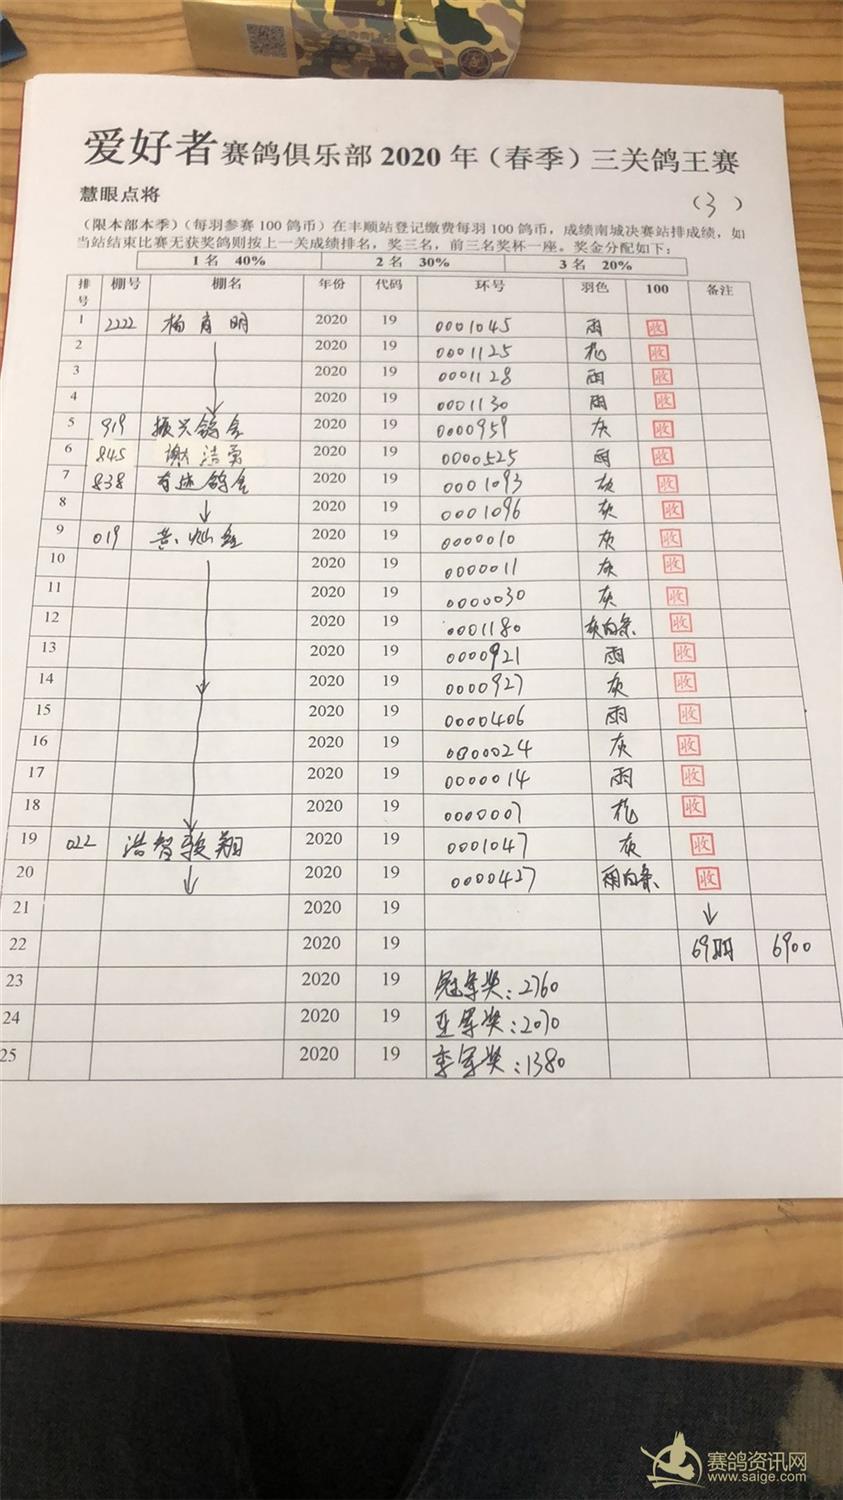 爱好者赛鸽俱乐部 2020 年（春季）三关鸽王赛
慧眼点将 （3）
（限本部本季）（每羽参赛 100 鸽币）在丰顺站登记缴费每羽 100 鸽币，成绩南城决赛站排成绩，如
当站结束比赛无获奖鸽则按上一关成绩排名，奖三名，前三名奖杯一座。奖金分配如下：
1 名 40% 2 名 30% 3 名 20%
排号 棚号 棚名 年份 代码 环号 羽色 100 备注
1 2222 杨育明 2020 19 0001045 雨 收
2 2020 19 0001125 花 收
3 2020 19 0001128 雨 收
4 2020 19 0001130 雨 收
5 919 振兴鸽舍 2020 19 0000959 灰 收
6 845 谢洁 2020 19 0000525 雨 收
7 838 鸽舍 2020 19 0001093 灰 收
8 ↓ 2020 19 0001096 灰 收
9 019 黄灿 2020 19 0000010 灰 收
10 2020 19 0000011 灰 收
11 2020 19 0000030 灰 收
12 2020 19 0001180 灰白条 收
13 2020 19 0000921 雨 收
14 2020 19 0000927 灰 收
15 2020 19 0000406 雨 收
16 2020 19 0000024 灰 收
17 2020 19 0000014 雨 收
18 2020 19 0000007 花 收
19 022 浩智骏翔 2020 19 0001047 灰 收
20 ↓ 2020 19 0000427 雨白条 收
21 2020 19 ↓
22 2020 19 69羽 6900
23 2020 19 冠军奖：2760
24 2020 19 亚军奖：2070
25 2020 19 季军奖：1380
赛鸽资讯网
www.saige.com